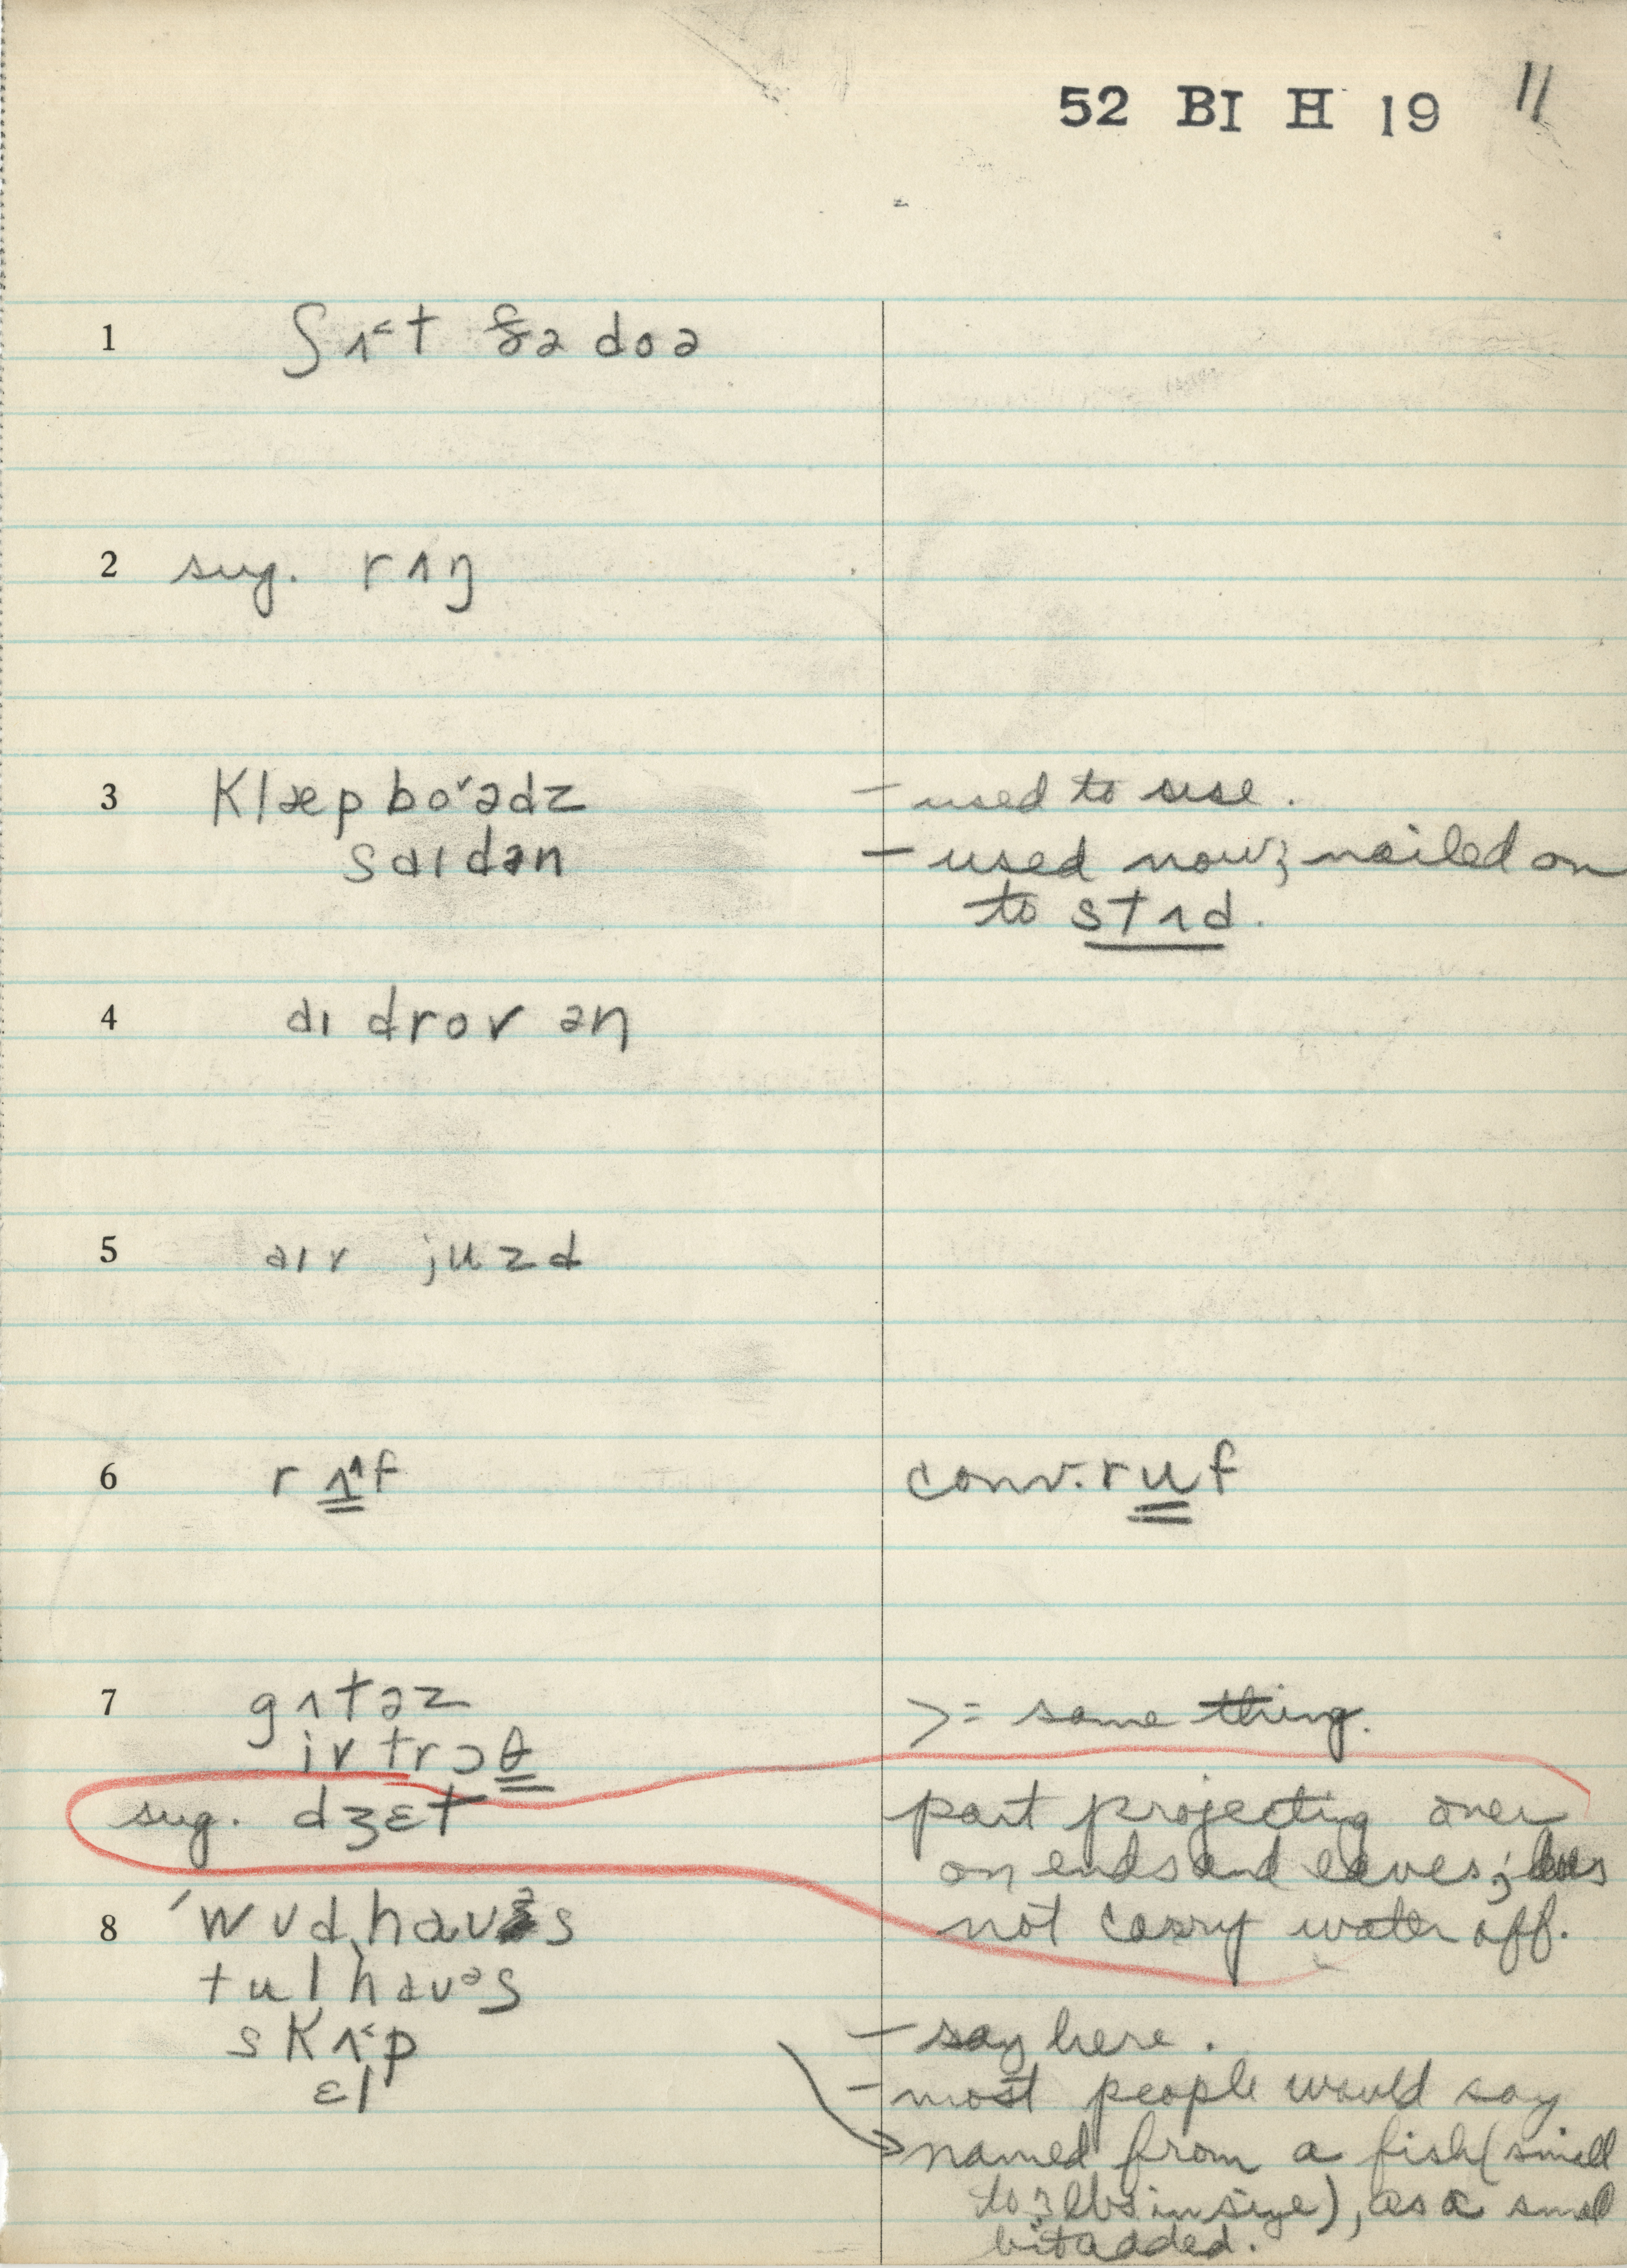 52 BI H 19 11
1 ʃʌ˂t ðə doə
2 sug. rʌŋ
3 Klæp bo˞ədz – used to use.
saɪdən – used now; nailed on
to stʌd.
4 aɪ drov ən
5 aɪv juzd
6 rʌ^f conv. ruf
7 gʌtəz >= same thing.
iv trɔθ
sug. dʒɛt part projecting over
on ends and eaves; does
not carry water off.
8 ˈwʊdˌhaʊᵊs
tulˌhaʊᵊs
sKʌ˂p – say here.
ɛl – most people would say
→ named from a fish (small
to 3 lbs in size), as a small
bit added.